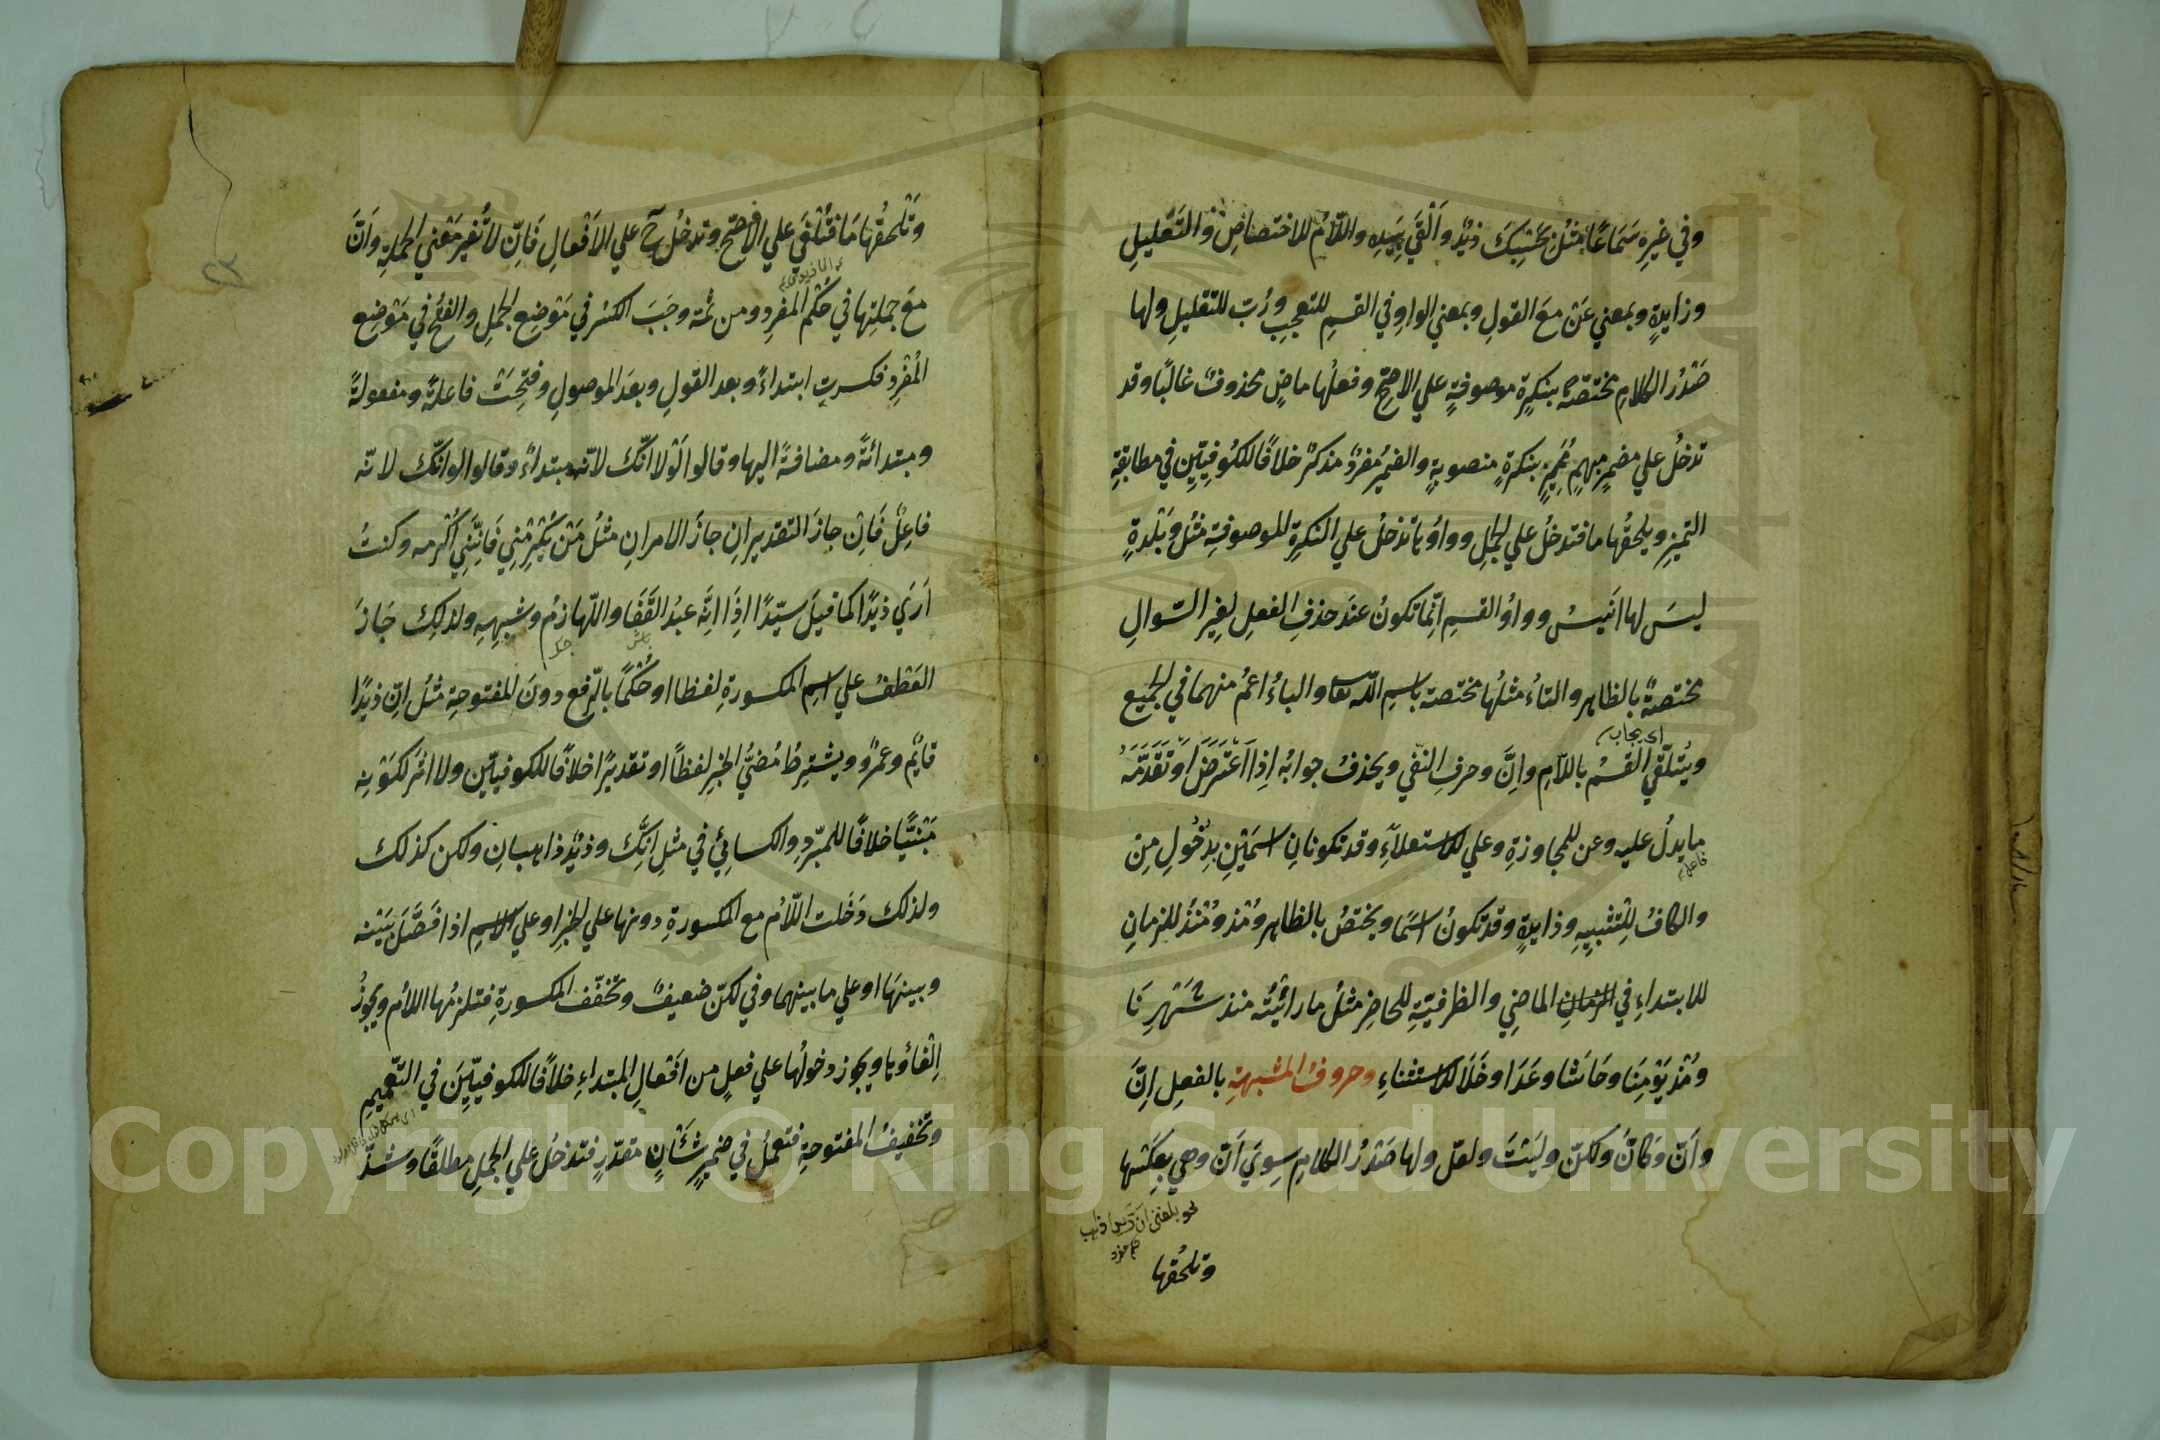 وفي غيره سَمَاعًا مثلُ بحَسْبِكَ زيدٌ وَاَلْقَي بِيَدِه واللّامُ للاختصاصِ والتَّعْليلِ
وزايدةٍ وبمعني عَنْ معَ القولِ وبمعني الواوِ في القسمِ للتعجبِ ورُبّ للتقليلِ ولها
صَدْرُ الكلامِ مختصّةٌ بنكرةٍ موصوفةٍ علي الاصحّ وفعلُها ماضٍ محذوفٌ غالبًا وقد
تدخلُ علي مضمرٍ مبهمٍ مُميَّزٍ بنكرةٍ منصوبةٍ والضميرُ مفردٌ مذكرٌ خلافًا للكوفيّينِ في مطابقةِ
التميزِ ويلحقُها ما فتدخلُ علي الجملِ وواوُها تدخلُ علي النكرةِ الموصوفةِ مثلُ وَبَلْدةٍ
ليسَ لها انيسُ وواوُ القسمِ انّما تكونُ عندَ حذفِ الفعلِ لغيرِ السّوالِ
مختصةٌ بالظاهرِ والتاءُ مثلُها مختصة باسمِ اللّه تعا والباءُ اعمُ منهما في الجميع
اي يجاب
ويُتلقّي القسمُ باللامِ وانّ وحرفِ النّفي ويحذفُ جوابُه اِذا اعْتَرَضَ اَوْ تَقَدَّمَهُ
ما يدلُ عليه وعن للمجاوزةِ وعلي للاستعلاءِ وقد تكونانِ اسمَيْنِ بدُخُولِ مِنْ
فاعل
والكافُ للتشبيهِ وزايدةٍ وقد تكونُ اسمًا ويختصُ بالظاهرِ ومُذ ومُنْذُ للزمانِ
للابتداءِ في الزمانِ الماضِي والظرفيّةِ للحاضرِ مثلُ ما رائيتُه منذ شَهْرِنَا
ومُذْ يَوْمِنَا وحَاشَا وعَدَا وخَلَا للاستثناءِ وحروفُ المشبهةِ بالفعلِ اِنّ
واَنّ وكانّ ولكنّ ولَيْتَ ولعلّ ولها صَدْرُ الكلامِ سِوي اَنّ وهي بعكسِها
نحو بلغني ان زيدا ذاهب
وتلحُقها
وَتَلْحقُها مَا فتُلْغَي علي الافصَحّ وتدخُل ح علي الاَفْعالِ فاِنّ لا تُغيرُ مَعْني الجملةِ واَنّ
معَ جملتِها في حُكْم المفردِ ومن ثمّة وجَبَ الكسرُ في مَوْضِعِ الجملِ والفتحُ في مَوْضِعِ
المُفْردِ فكسرت ابتداءً وبعد القولِ وبعدَ الموصولِ وفُتِحَتْ فاعلةً ومفعولةً
ومبتدائةً ومضافةً اليها وقالوا لَوْلا انّكَ لانّه مبتداءٌ وقالوا لو انّكَ لانّه
فاعِلٌ فَاِنْ جازَ التقديرانِ جازَ الامرانِ مثلُ مَنْ يُكْرِمْنِي فَانّنِي اُكْرمه وكنتُ
اَرَي زيدًا كما قيلَ سيّدًا اذَا انّه عبدُ القَفَا واللّهازمُ وشبهِهِ ولذلكَ جَازَ
العَطْفُ علي اسمِ المكسورةِ لفظا او حُكْمًا بالرّفع دونَ المفتوحةِ مثلُ اِنّ زيدًا
قايمٌ وعمرٌو ويشترطُ مُضيُّ الخبرِ لفظًا او تقديرًا خلافًا للكوفيّين ولا اثرَ لكَوْنِه
مَبْنيًّا خلافًا للمبّردِ والكسائِي في مثلِ انّكَ وزيدٌ ذاهبانِ ولكن كذلك
ولذلكَ دَخَلت اللّامُ مع المكسورةِ دونها علي الخبرِ او علي الاسمِ اذا فَصَلَ بَيْنه
وبينهَا او علي ما بينهما وفي لكنّ ضعيفٌ وتخفّف المكسورةُ فتلزمُها اللامُ ويجوزُ
اِلْغاؤها ويجوز دخولُها علي فعلٍ من اَفْعالِ المبتداءِ خلافًا للكوفيّينَ في التّعميمِ
وتخفيفُ المفتوحةِ فتعملُ في ضميرِ شَأنٍ مقدّرٍ فتدخلُ علي الجملِ مطلقًا وشذّ